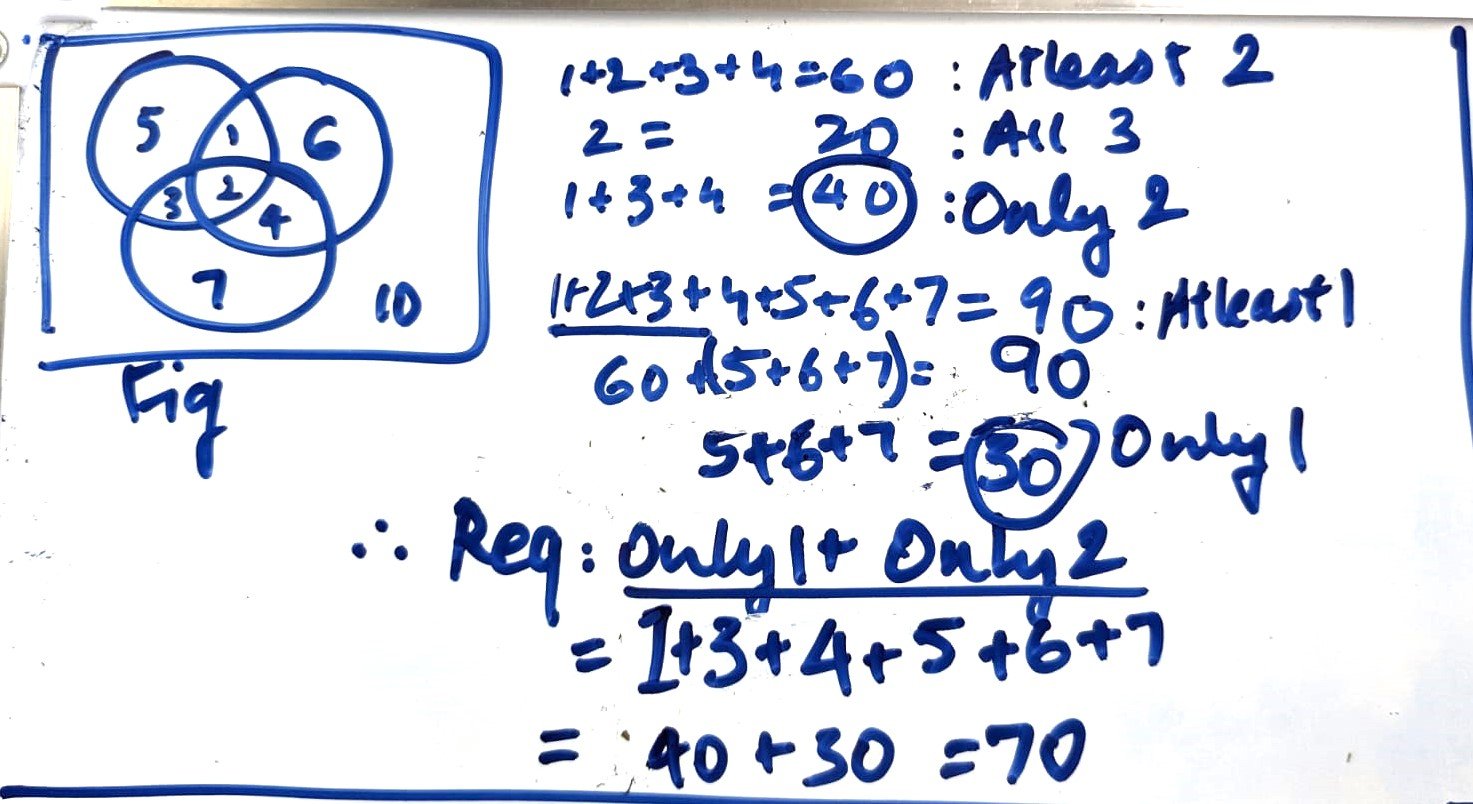 5 1 6
3 2 4
7 10
Fig
1+2+3+4=60 : Atleast 2
2 = 20 : All 3
1+3+4 = 40 : Only 2
1+2+3+4+5+6+7= 90 : Atleast 1
60 +(5+6+7)= 90
5+6+7 = 30 Only 1
∴ Req: Only 1+ Only 2
= 1+3+4+5+6+7
= 40+30 =70